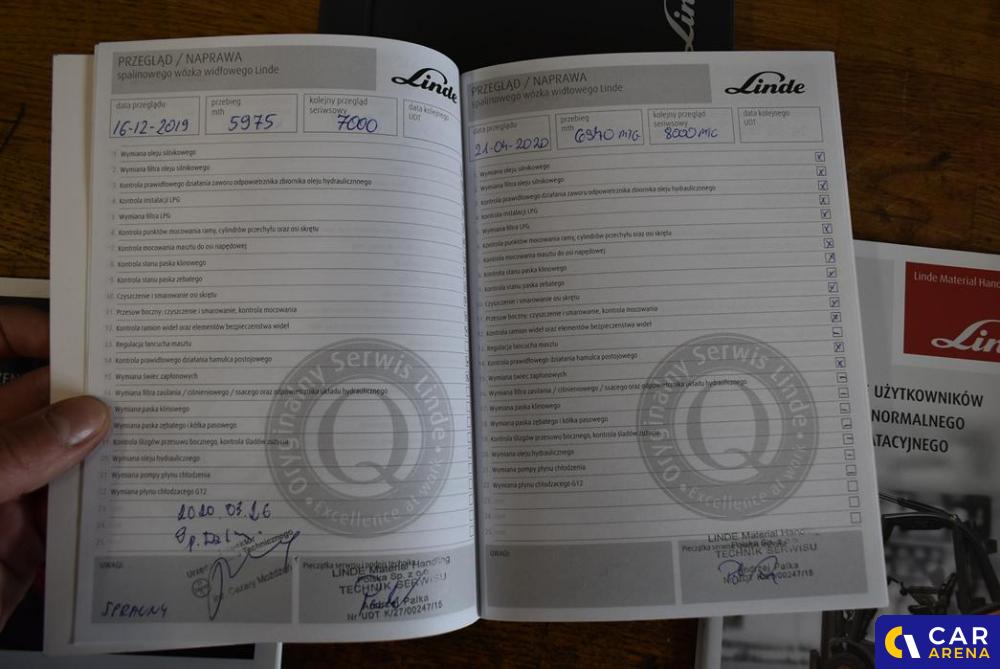 Linde
PRZEGLĄD / NAPRAWA
spalinowego wózka widłowego Linde
Linde
data przeglądu
przebieg
mth
kolejny przegląd
seriwsowy
data kolejnego
UDT
16-12-2019
5975
7000
1. Wymiana oleju silnikowego
2. Wymiana filtra oleju silnikowego
3. Kontrola prawidłowego działania zaworu odpowietrznika zbiornika oleju hydraulicznnego
4. Kontrola instalacji LPG
5. Wymiana filtra LPG
6. Kontrola punktów mocowania ramy, cylindrów przechyłu oraz osi skrętu
7. Kontrola mocowania masztu do osi napędowej
8. Kontrola stanu paska klinowego
9. Kontrola stanu paska zębatego
10. Czyszczenie i smarowanie osi skrętu
11. Przesuw boczny: czyszczenie i smarowanie, kontrola mocowania
12. Kontrola ramion wideł oraz elementów bezpieczeństwa wideł
13. Regulacja łańcucha masztu
14. Kontrola prawidłowego działania hamulca postojowego
15. Wymiana świec zapłonowych
Wymiana filtra zasilania / ciśnieniowego / ssącego oraz odpowietrznika układu hydraulicznego
Wymiana paska klinowego
Wymiana paska zębatego i kółka pasowego
Kontrola ślizgów przesuwu bocznego, kontrola śladów zużycia
20. Wymiana oleju hydraulicznego
21. Wymiana pompy płynu chłodzenia
22. Wymiana płynu chłodzącego G12
23.
24.
25.
Oryginalny Serwis Linde
Q
Excellence at work
2020.03.26
Technicznego
inż. Cezary
UWAGI:
SPRAWNY
Pieczątka serwisu i podpis technika
LINDE Material Handling
Polska Sp. z o.o.
TECHNIK SERWISU
Andrzej Pałka
Nr UDT K/27/00247/15
PRZEGLĄD / NAPRAWA
spalinowego wózka widłowego Linde
Linde
data przeglądu
przebieg
mth
kolejny przegląd
seriwsowy
data kolejnego
UDT
21-04-2020
6940 MTG
8000 MTG
Wymiana oleju silnikowego
Wymiana filtra oleju silnikowego
Kontrola prawidłowego działania zaworu odpowietrznika zbiornika oleju hydraulicznnego
Kontrola instalacji LPG
Wymiana filtra LPG
Kontrola punktów mocowania ramy, cylindrów przechyłu oraz osi skrętu
Kontrola mocowania masztu do osi napędowej
Kontrola stanu paska klinowego
Kontrola stanu paska zębatego
Czyszczenie i smarowanie osi skrętu
Przesuw boczny: czyszczenie i smarowanie, kontrola mocowania
Kontrola ramion wideł oraz elementów bezpieczeństwa wideł
Regulacja łańcucha masztu
Kontrola prawidłowego działania hamulca postojowego
Wymiana świec zapłonowych
Wymiana filtra zasilania / ciśnieniowego / ssącego oraz odpowietrznika układu hydraulicznego
Wymiana paska klinowego
Wymiana paska zębatego i kółka pasowego
Kontrola ślizgów przesuwu bocznego, kontrola śladów zużycia
Wymiana oleju hydraulicznego
Wymiana pompy płynu chłodzenia
Wymiana płynu chłodzącego G12
Oryginalny Serwis Linde
Q
Excellence at work
UWAGI:
Pieczątka serwisu
LINDE Material Handling
Polska Sp. z o.o.
TECHNIK SERWISU
Andrzej Pałka
Nr UDT K/27/00247/15
Linde Material Hand
Lin
UŻYTKOWNIKÓW
NORMALNEGO
ATACYJNEGO
CAR
ARENA